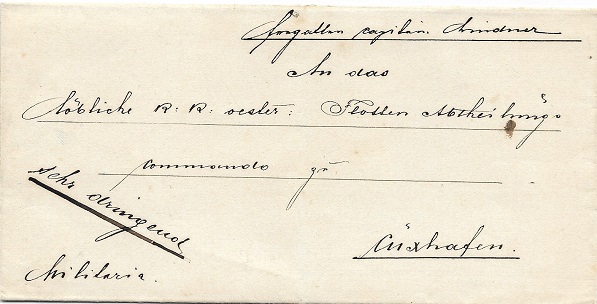 Fregatten capitän Lindner
An das
löbliche K: K: oester: Flotten Abtheilungs
commando zu
Sehr dringend
Cuxhafen.
Militaria.